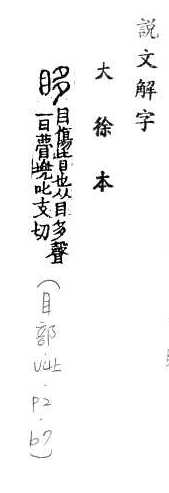 說文解字
大徐本
眵
目傷眥也从目多聲
一曰瞢兜叱支切
(目部 V4上·P2·b7)